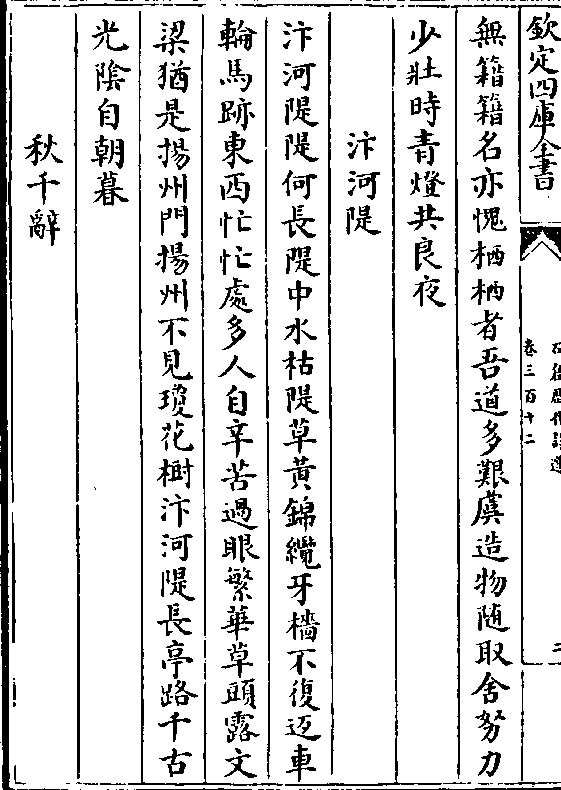 欽定四庫全書
卷三百十二
無籍籍名亦愧栖栖者吾道多艱虞造物随取舍努力
少壯時青燈共良夜
汴河隄
汴河隄隄何長隄中水枯隄草黃錦纜牙檣不復迈車
輪馬跡東西忙忙處多人自辛苦過眼繁華草頭露文
梁猶是揚州門揚州不見瓊花樹汴河隄長亭路千古
光陰自朝暮
秋千辭